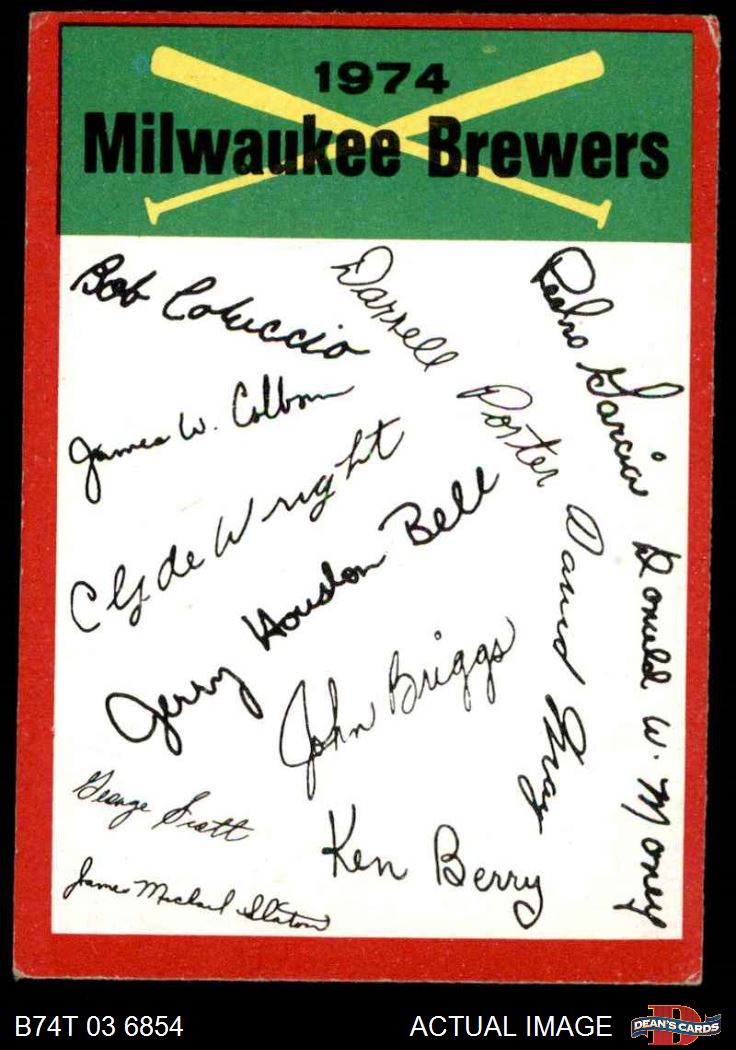 1974
Milwaukee Brewers
Bob Coluccio
Darrell Porter
Pedro Garcia
James W. Colborn
Clyde Wright
Jerry Houston Bell
David May
Donald W. Money
John Briggs
George Scott
Ken Berry
James Michael Slaton
B74T 03 6854
ACTUAL IMAGE
D
DEAN'S CARDS